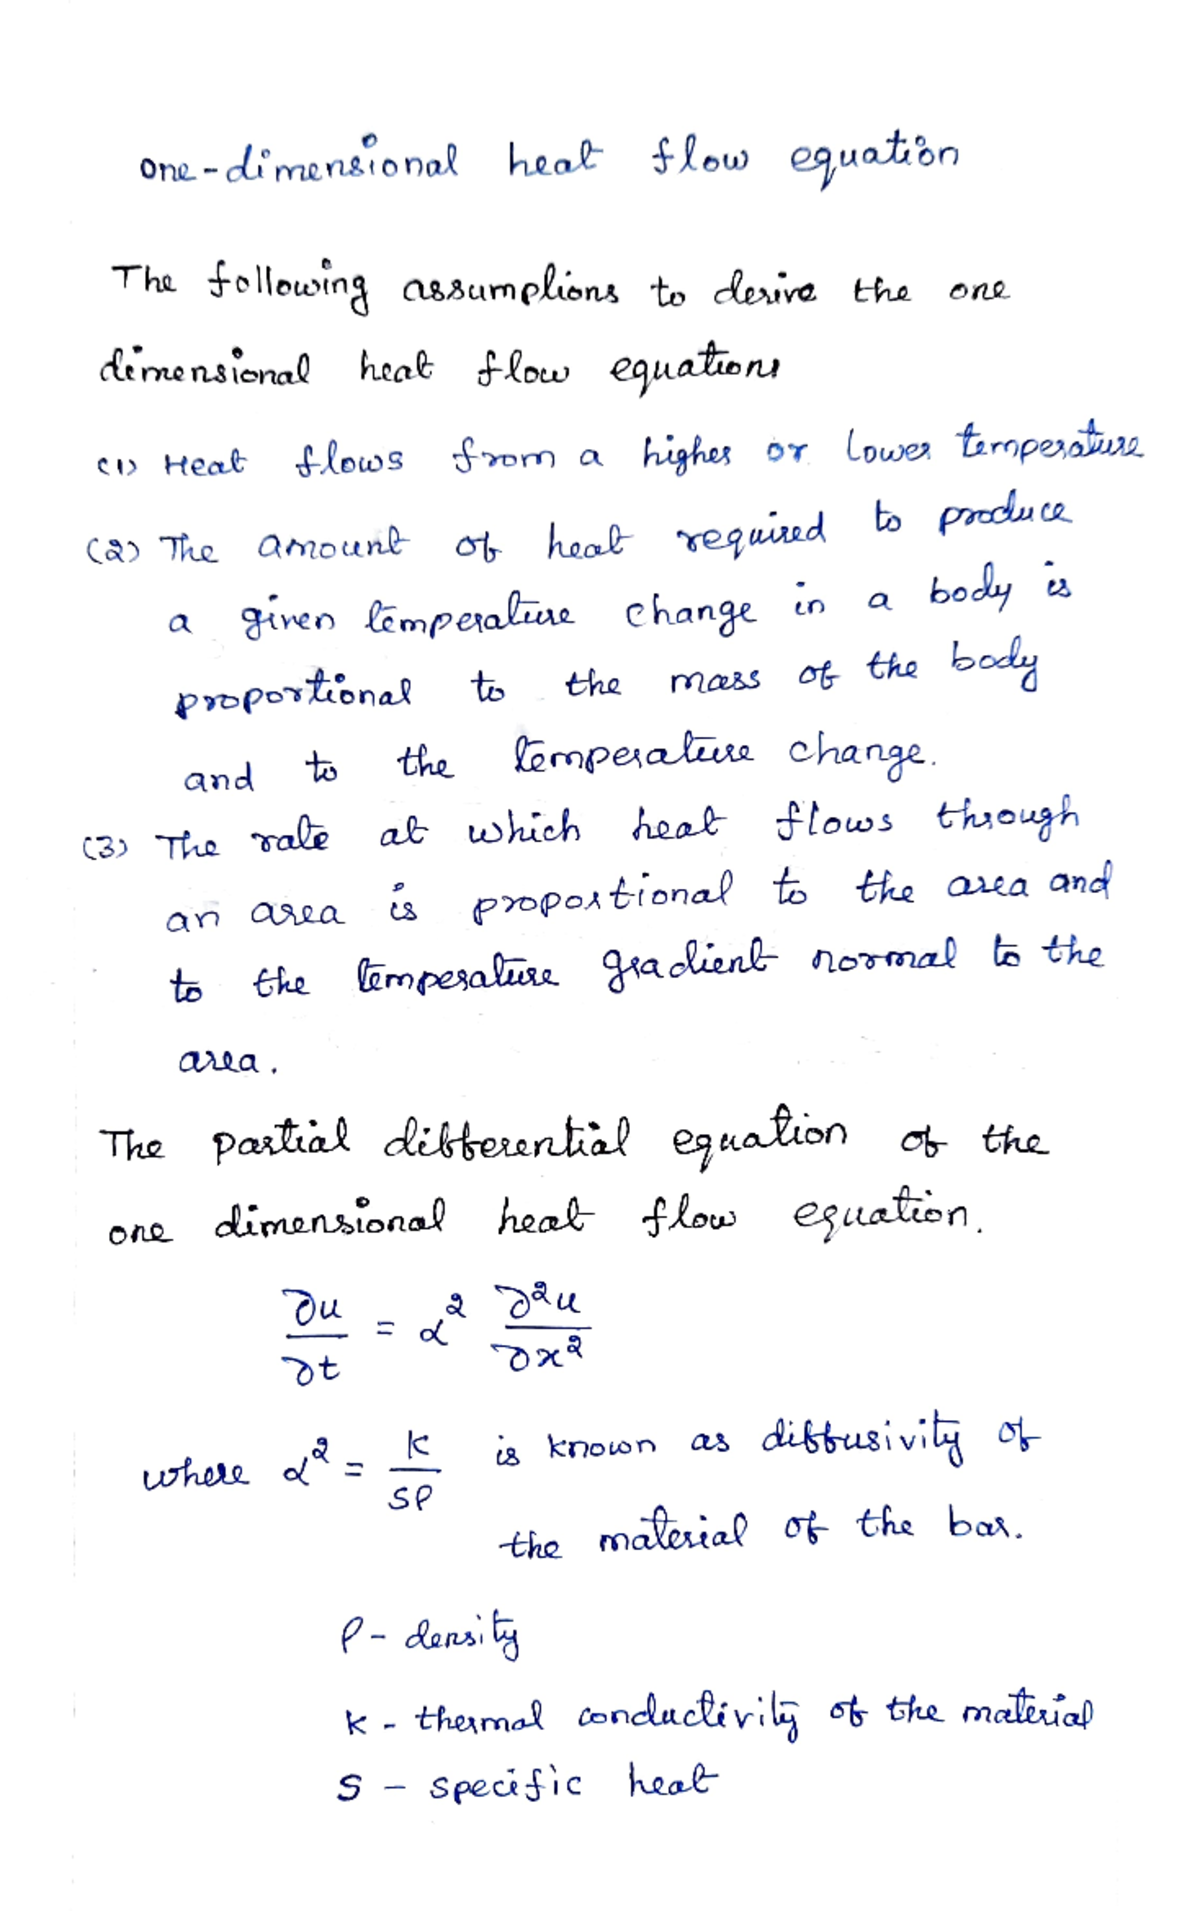 one-dimensional heat flow equation
The following assumptions to derive the one
dimensional heat flow equations
(1) Heat flows from a higher or lower temperature
(2) The amount of heat required to produce
a given temperature change in a body is
proportional to the mass of the body
and to the temperature change.
(3) The rate at which heat flows through
an area is proportional to the area and
to the temperature gradient normal to the
area.
The partial differential equation of the
one dimensional heat flow equation.
∂u/∂t = α² ∂²u/∂x²
where α² = k/Sρ is known as diffusivity of
the material of the bar.
ρ - density
k - thermal conductivity of the material
S - specific heat